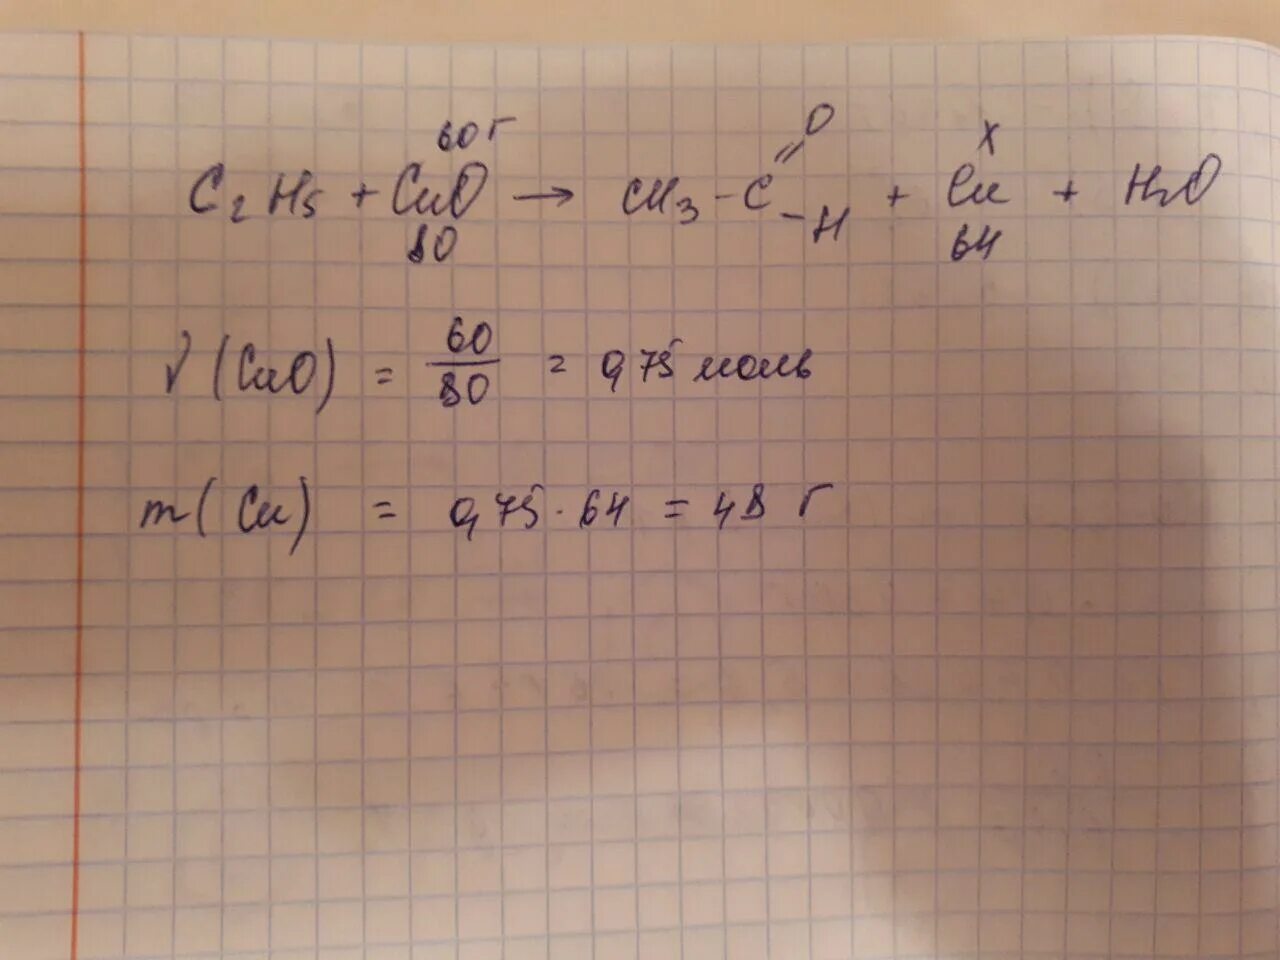 60 г
O
x
C₂H₅ + CuO → CH₃ - C = - H + Cu + H₂O
80
64
ν (CuO) = 60/80 = 0,75 моль
m ( Cu ) = 0,75 · 64 = 48 г